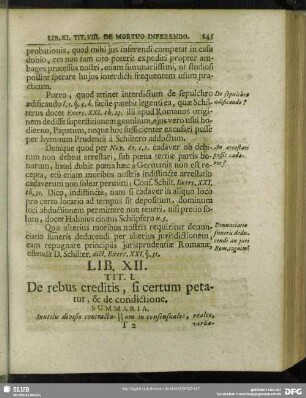 LIB. XI. TIT. VIII. DE MORTUO INFERENDO. 145
probationis, quod mihi jus inferendi competat in casu
dubio, res non tam cito poterit expediri propter am-
bages processus nostri, etiam summarissimi, ut studiosi
postint sperare hujus interdicti frequentem usum pra-
cticum.
Porro, quod attinet interdictum de sepulchro
ædificando l. 1. §. 5. h. facile patebit legenti ea, quæ Schil-
terus docet Exerc. XXI. th. 23. illi apud Romanos origi-
nem dedisse superstitionem gentilium, ejus vero usui ho-
dierno, Papatum, neque hoc sufficienter excusari posse
per hymnum Prudentii à Schiltero adductum.
De sepulchro
ædificando?
Denique quod per Nov. 60. c. 1. cadaver ob debi-
tum non debeat arrestari, sub pœna tertiæ partis bo-
norum, haud dubie pœna hæc à Germanis non est re-
cepta, etsi eriam moribus nostris indistincte arrestatio
cadaverum non soleat permitti: Conf. Schilt. Exerc. XXI.
th. 31. Dico, indistincte, nam si cadaver in aliquo loco
pro certo locario ad tempus sit depositum, dominum
loci abductionem permittere non teneri, nisi pretio so-
luto, docet Hahnius citatus Schöpfero n. 5.
An arrestari
possit cada-
ver?
Quæ ulterius moribus nostris requiritur denun-
ciatio funeris deducendi per alterius jurisdictionem,
eam repugnare principiis jurisprudentiæ Romanæ,
ostendit D. Schilter. dict. Exerc. XXI. §. 32.
Denunciatio
funeris dedu-
cendi an juri
Rom. cognita?
LIB. XII.
TIT. I.
De rebus creditis, si certum peta-
tur, & de condictione.
SUMMARIA.
Inutilis divisio contractu- um in consensuales, reales,
T 2 verba-
SLUB